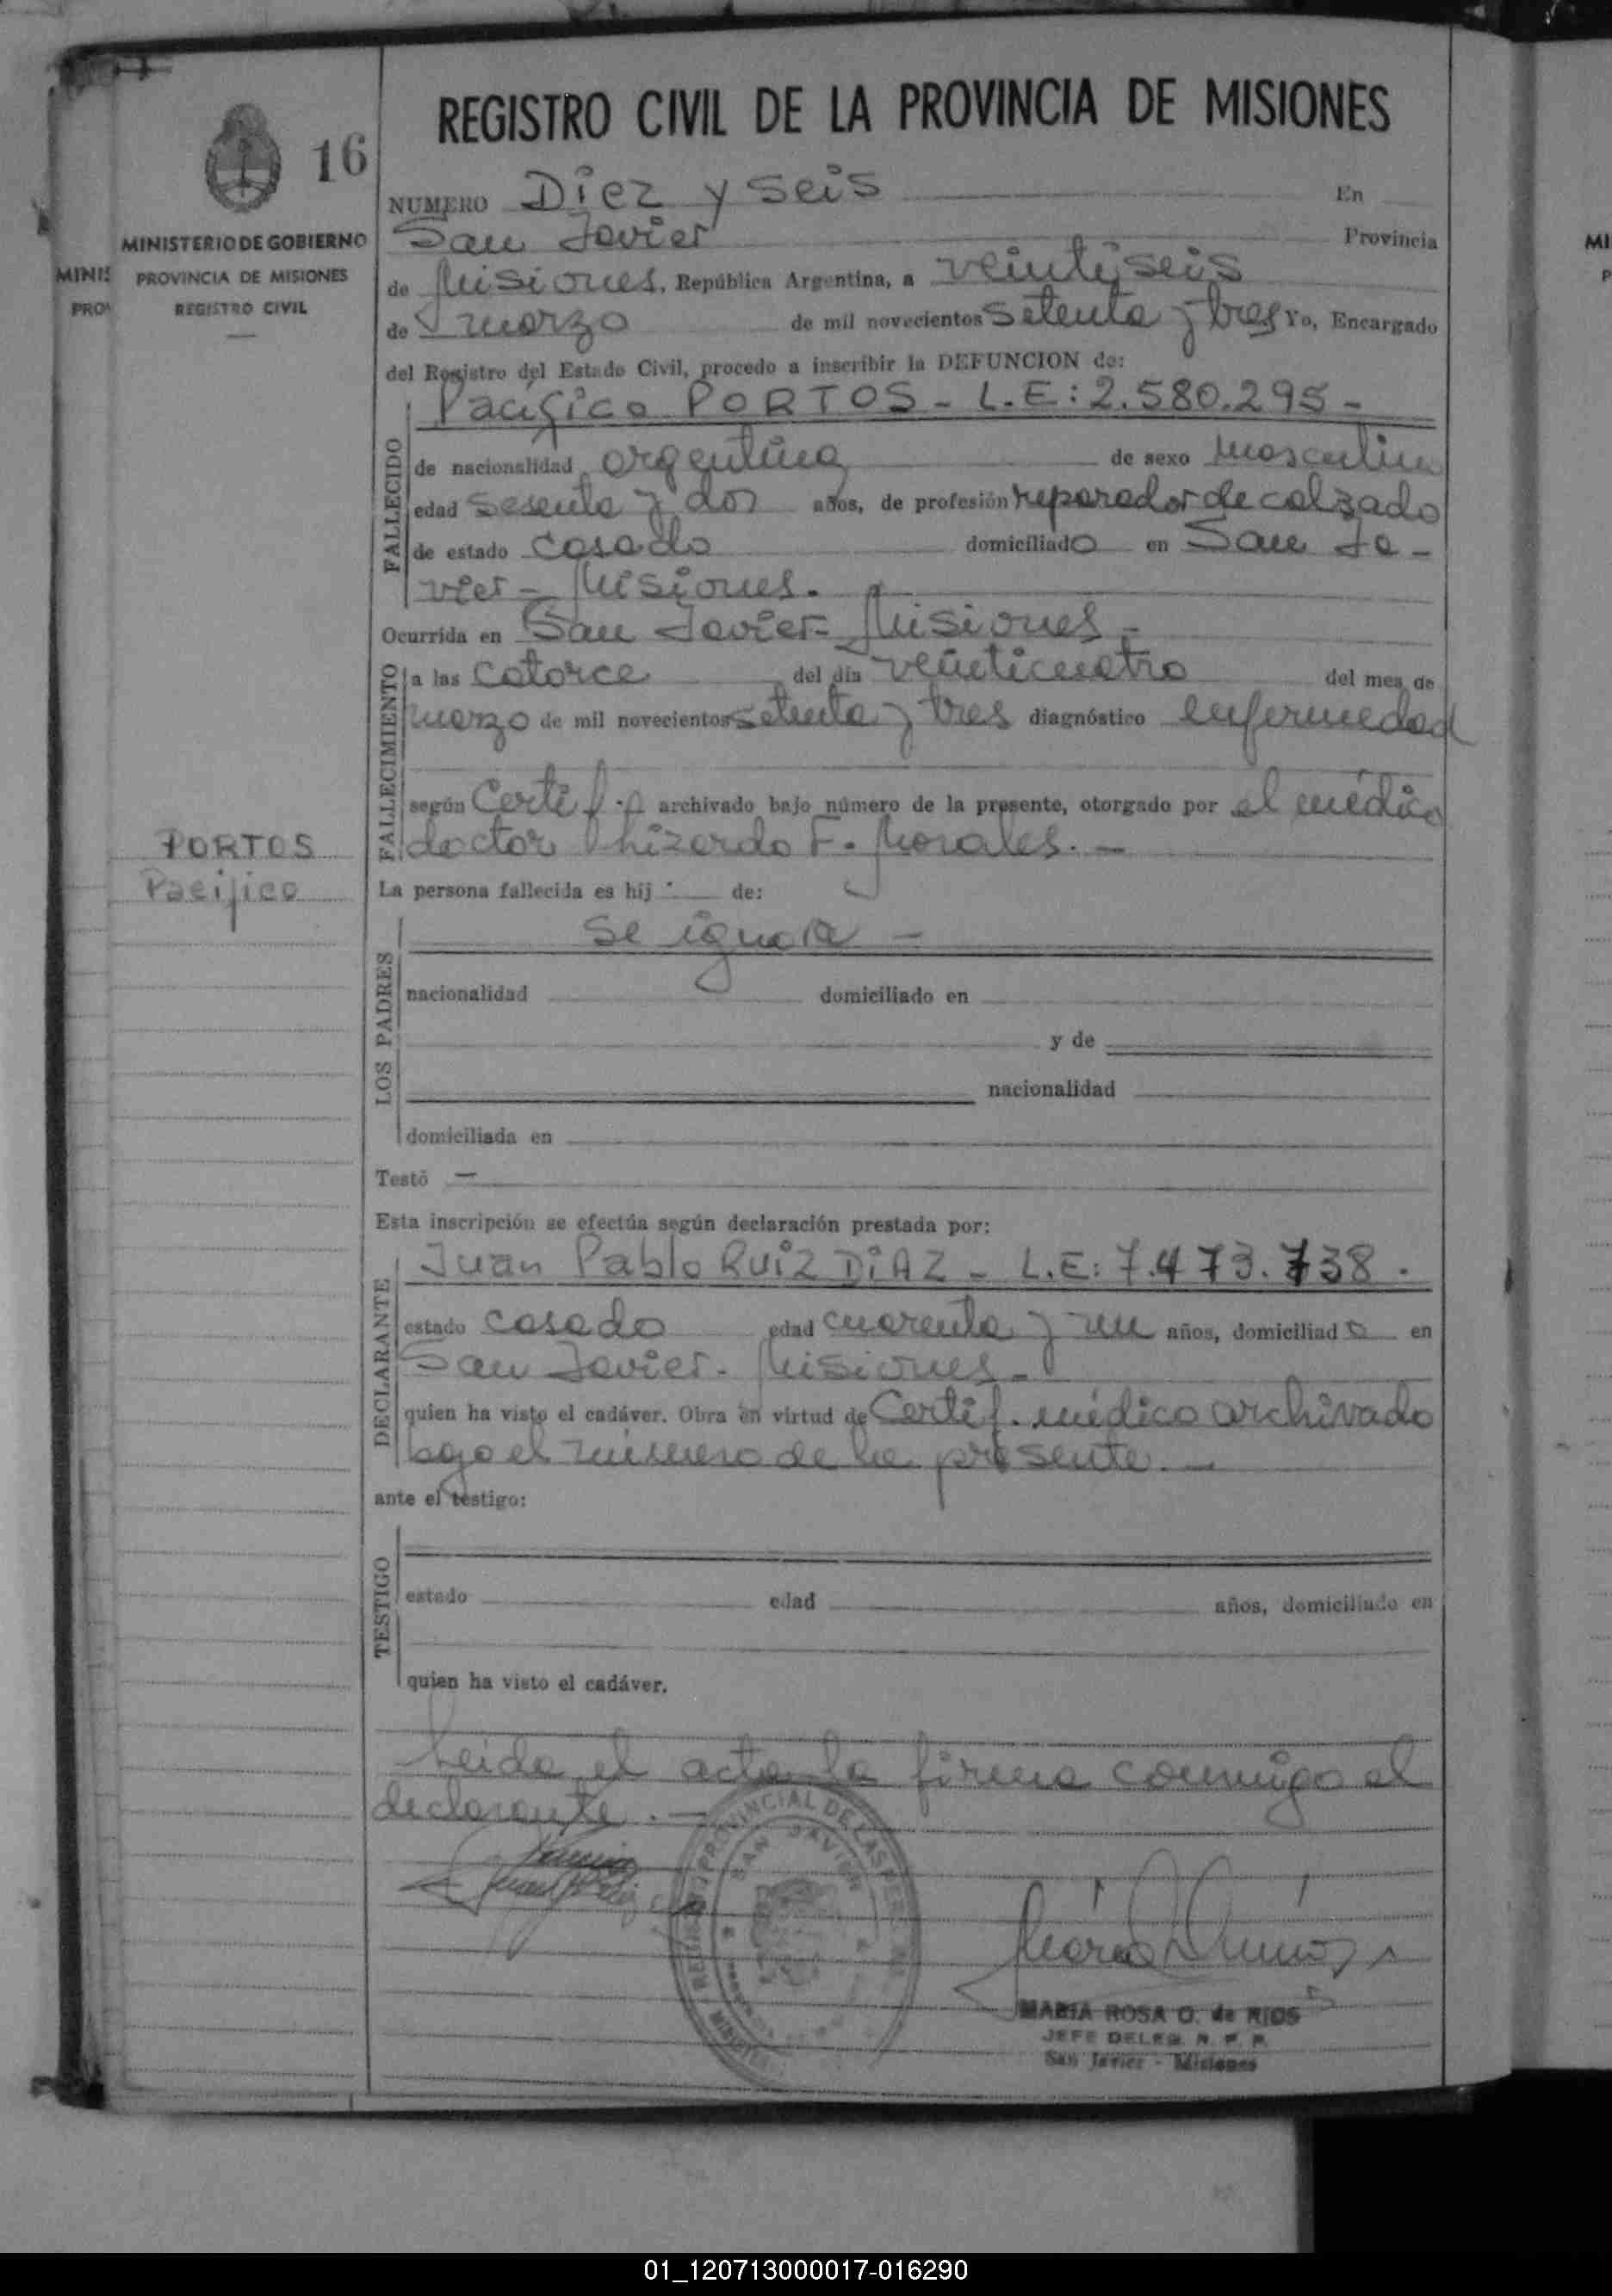 REGISTRO CIVIL DE LA PROVINCIA DE MISIONES
16
MINISTERIO DE GOBIERNO
PROVINCIA DE MISIONES
REGISTRO CIVIL
PORTOS
Pacifico
NUMERO Diez y seis En
San Javier Provincia
de Misiones, República Argentina, a veintiseis
de marzo de mil novecientos setenta y tres Yo, Encargado
del Registro del Estado Civil, procedo a inscribir la DEFUNCION de:
Pacifico PORTOS - L.E: 2.580.295 -
FALLECIDO
de nacionalidad argentina de sexo masculino
edad sesenta y dos años, de profesión reparador de calzado
de estado casado domiciliado en San Ja-
vier - Misiones.
Ocurrida en San Javier - Misiones -
FALLECIMIENTO
a las catorce del día veinticuatro del mes de
marzo de mil novecientos setenta y tres diagnóstico enfermedad
según Certif. archivado bajo número de la presente, otorgado por el médico
doctor F. Morales. -
La persona fallecida es hij - de:
LOS PADRES
se ignora -
nacionalidad domiciliado en
y de
nacionalidad
domiciliada en
Testó -
Esta inscripción se efectúa según declaración prestada por:
DECLARANTE
Juan Pablo RUIZ DIAZ - L.E: 7.473.738.
estado casado edad cuarenta y un años, domiciliado en
San Javier - Misiones -
quien ha visto el cadáver. Obra en virtud de Certif. médico archivado
bajo el número de la presente. -
ante el testigo:
TESTIGO
estado edad años, domiciliado en
quien ha visto el cadáver.
Leida el acta la firma conmigo el
declarante. -
SAN JAVIER
MARIA ROSA O. de RIOS
JEFE DELEG. R. P. P.
San Javier - Misiones
01_120713000017-016290